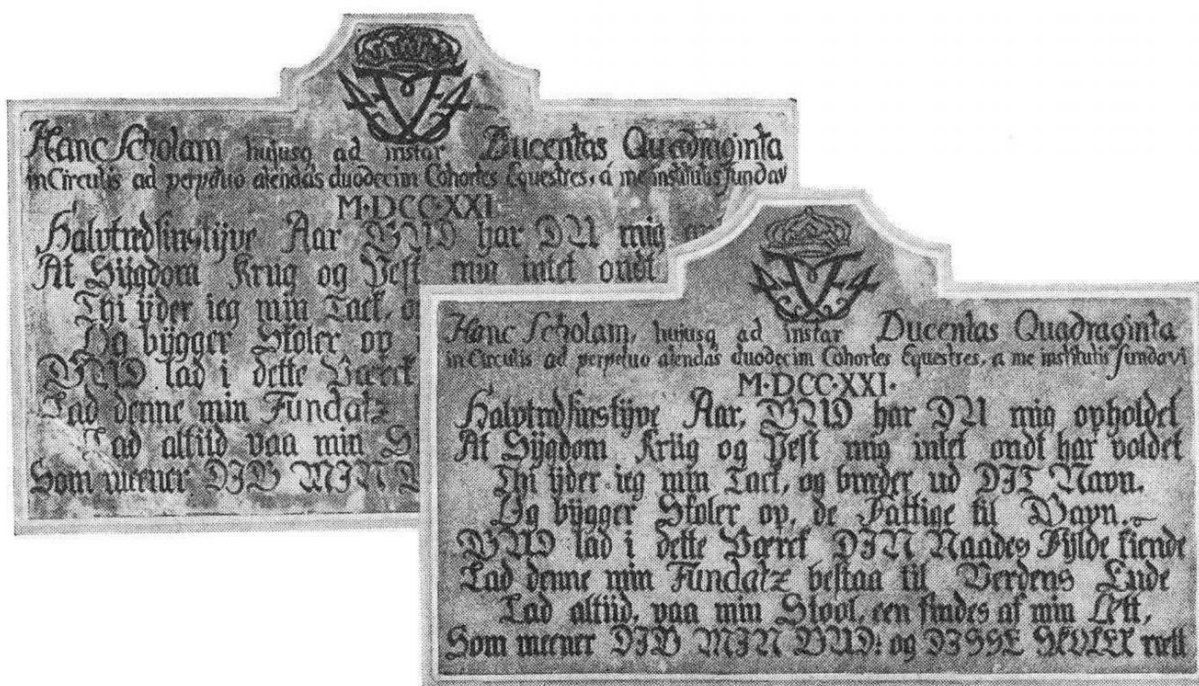 Hanc Scholam hujusq ad instar Ducentas Quadraginta
in Circulis ad perpetuo alendas duodecim Cohortes Equestres, a me institutis fundav
M·DCC·XXI
Halvtredsinstÿve Aar GUD har DU mig
At Sÿgdom Krug og Pest mig intet ondt
Thi ÿder ieg min Tack,
Og bÿgger Skoler op
GUD lad i dette Værck
Lad denne min Fundatz
Lad altiid paa min
Som meener DIG MIN
Hanc Scholam, hujusq ad instar Ducentas Quadraginta
in Circulis ad perpetuo alendas duodecim Cohortes Equestres, a me institutis fundavi
M·DCC·XXI·
Halvtredsinstÿve Aar, GUD har DU mig opholdet
At Sÿgdom Krüg og Pest mig intet ondt har voldet
Thi ÿder ieg min Tack, og breder ud DIT Navn.
Og bÿgger Skoler op, de Fattige til Gavn.
GUD lad i dette Værck DIN Naades Fÿlde kiende
Lad denne min Fundatz bestaa til Verdens Ende
Lad altiid, paa min Stool, een findes af min Ætt,
Som meener DIG MIN GUD: og DISSE SKOLER rett